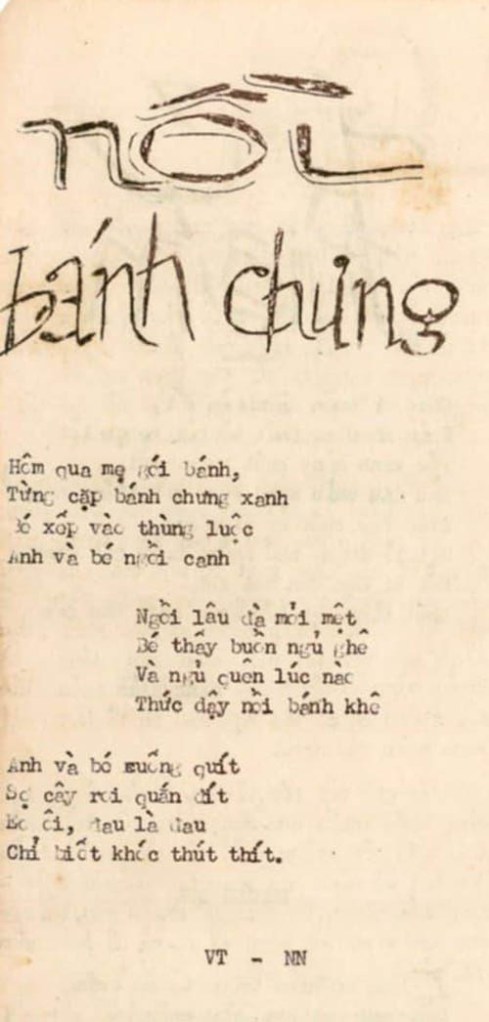 nồi
bánh chưng
Hôm qua mẹ gói bánh,
Từng cặp bánh chưng xanh
Bé xốp vào thùng luộc
Anh và bé ngồi canh
Ngồi lâu đà mỏi mệt
Bé thấy buồn ngủ ghê
Và ngủ quên lúc nào
Thức dậy nồi bánh khê
Anh và bé cuống quít
Sợ cây roi quấn đít
ôi, đau là đau
Chỉ biết khóc thút thít.
VT - NN